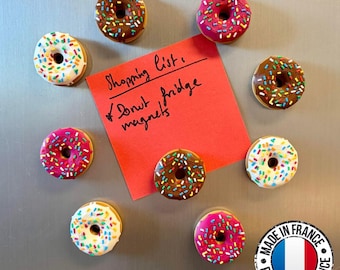 Shopping list:
Donut fridge
magnets
MADE IN FRANCE